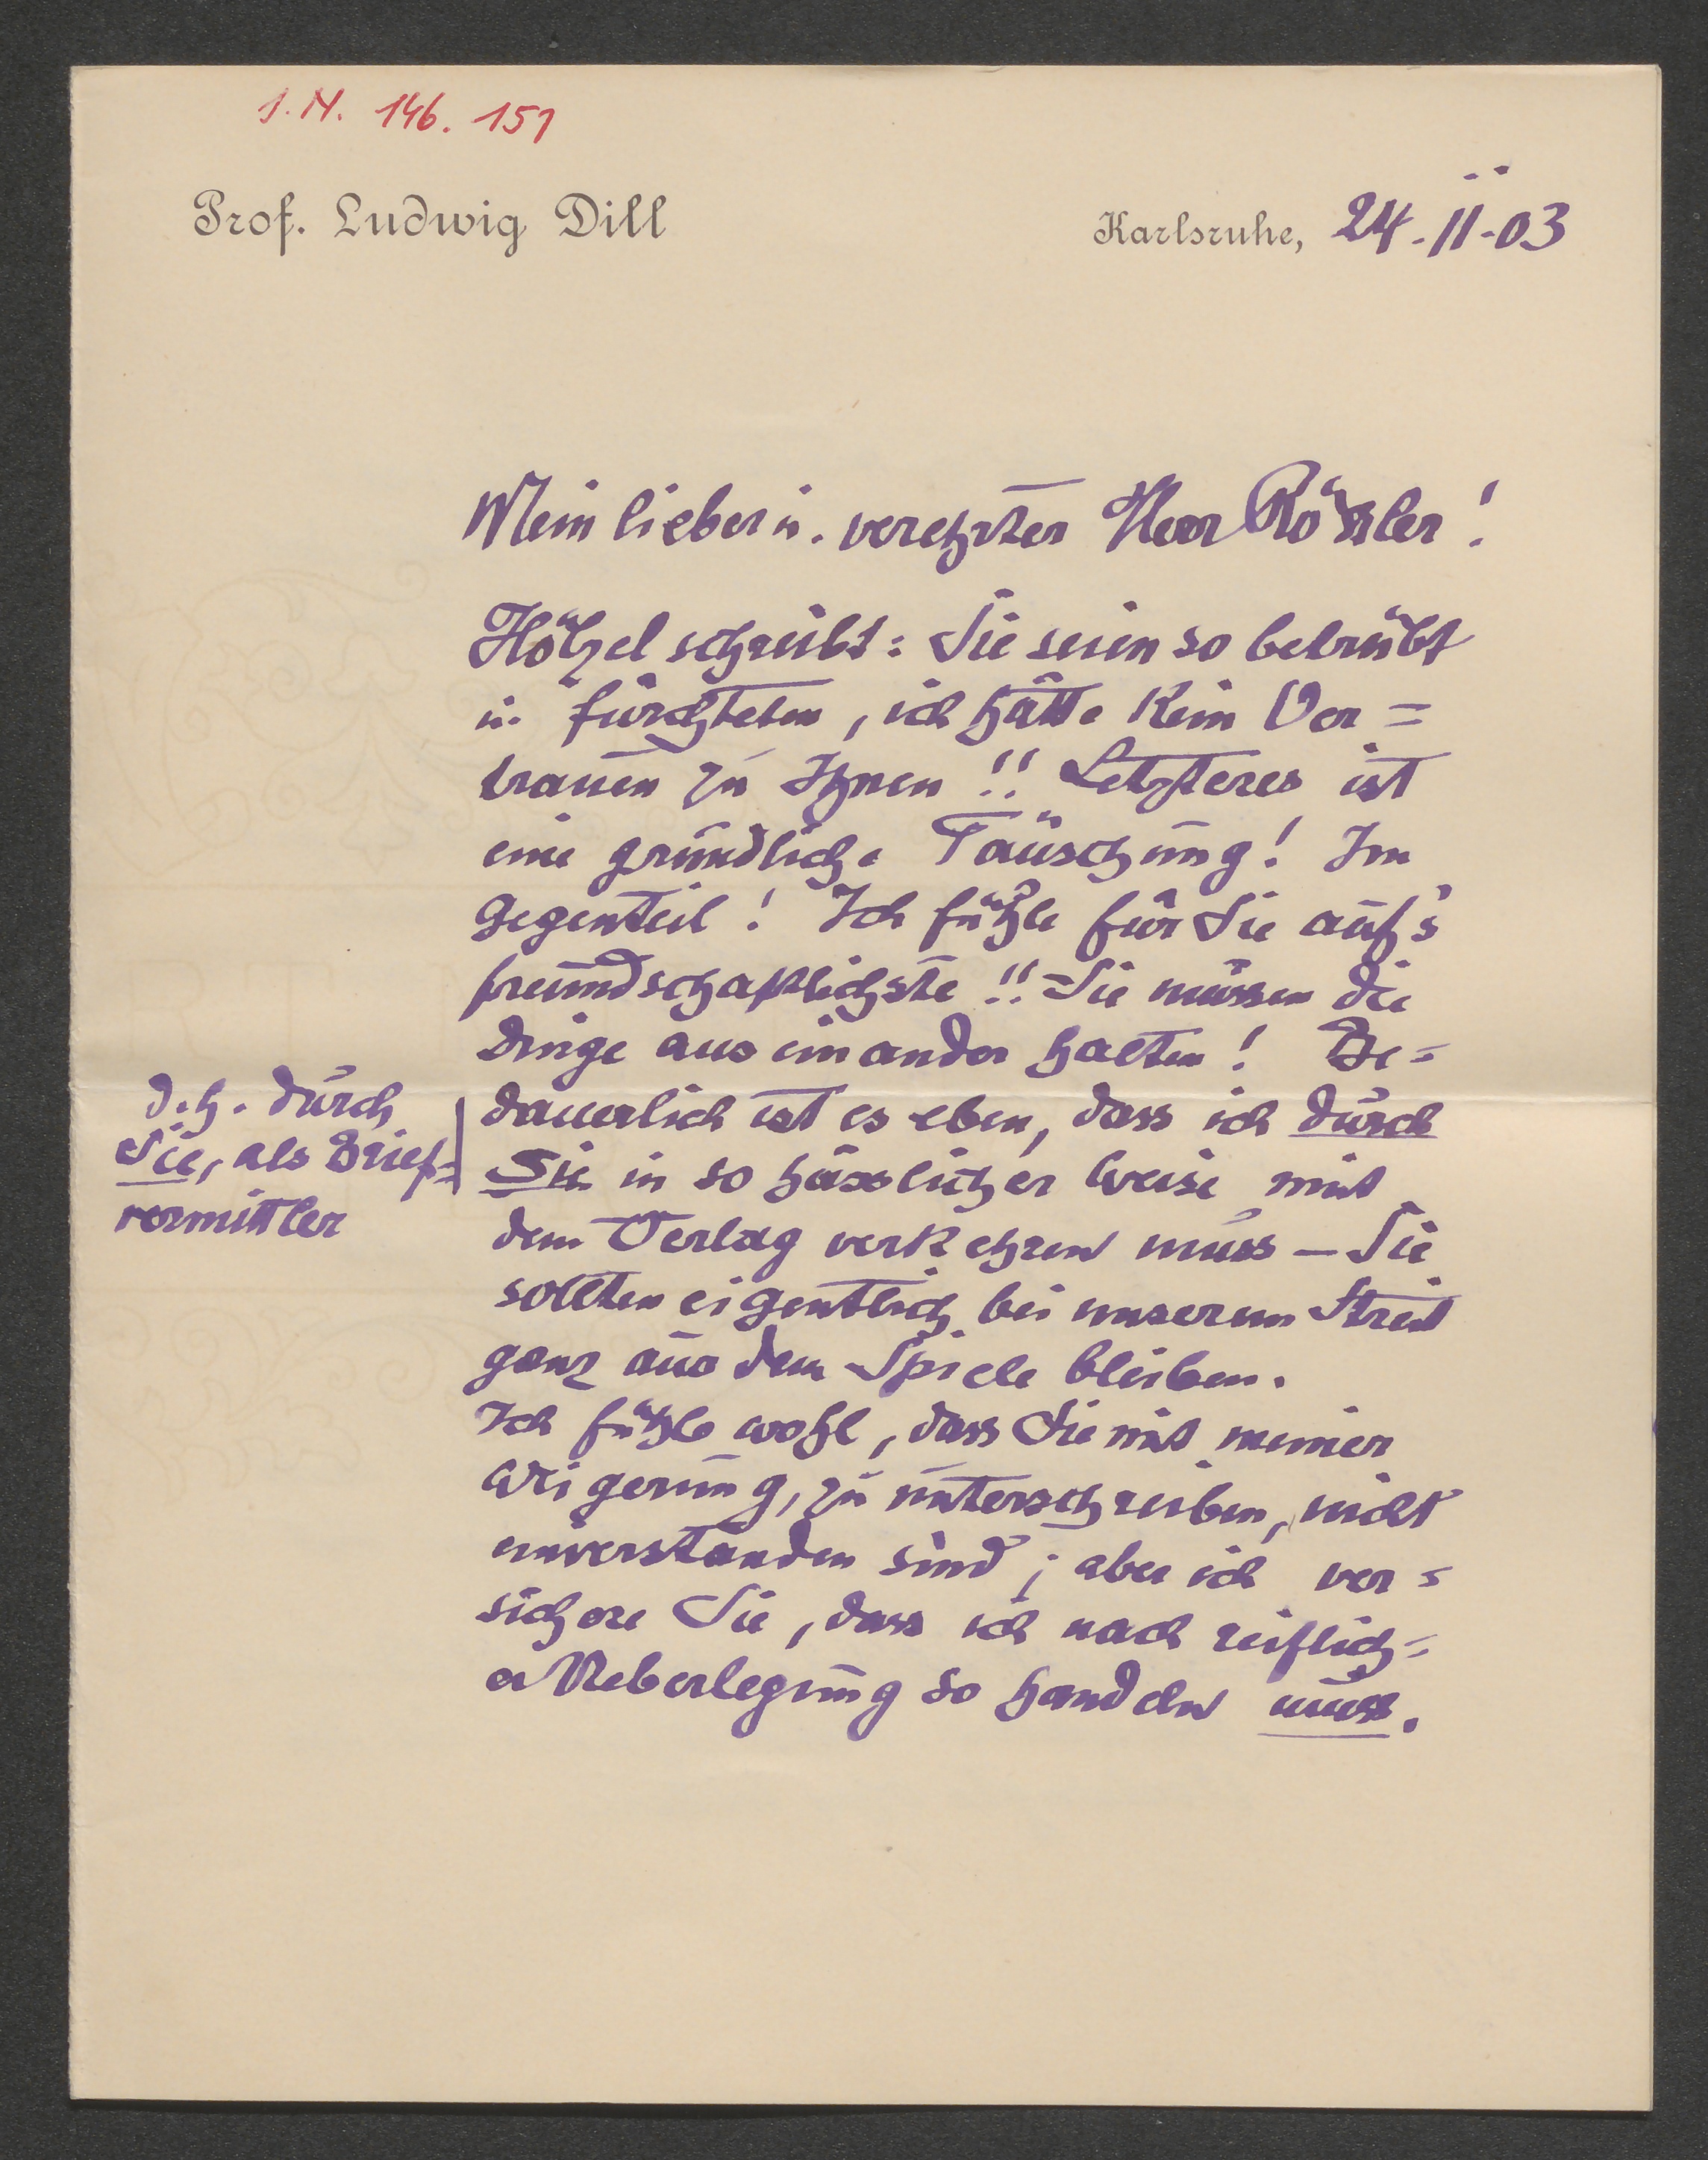 J.N. 146.151
Prof. Ludwig Dill
Karlsruhe, 24.II.03
Mein lieber u. verehrter Herr Rössler!
Hölzel schreibt: Sie seien so betrübt
u. fürchteten, ich hätte kein Ver=
trauen zu Ihnen!! Letzteres ist
eine gründliche Täuschung! Im
Gegenteil! Ich fühle für Sie auf's
freundschaftlichste!! Sie müssen die
Dinge auseinander halten! Be=
dauerlich ist es eben, dass ich durch
Sie in so hässlicher Weise mit
dem Verlag verkehren muss – Sie
sollten eigentlich bei unserem Streit
ganz aus dem Spiele bleiben.
Ich fühle wohl, dass Sie mit meiner
Weigerung, zu unterschreiben, nicht
einverstanden sind; aber ich ver=
sichere Sie, dass ich nach reiflich=
er Ueberlegung so handeln muss.
d.h. durch
Sie, als Brief=
vermittler